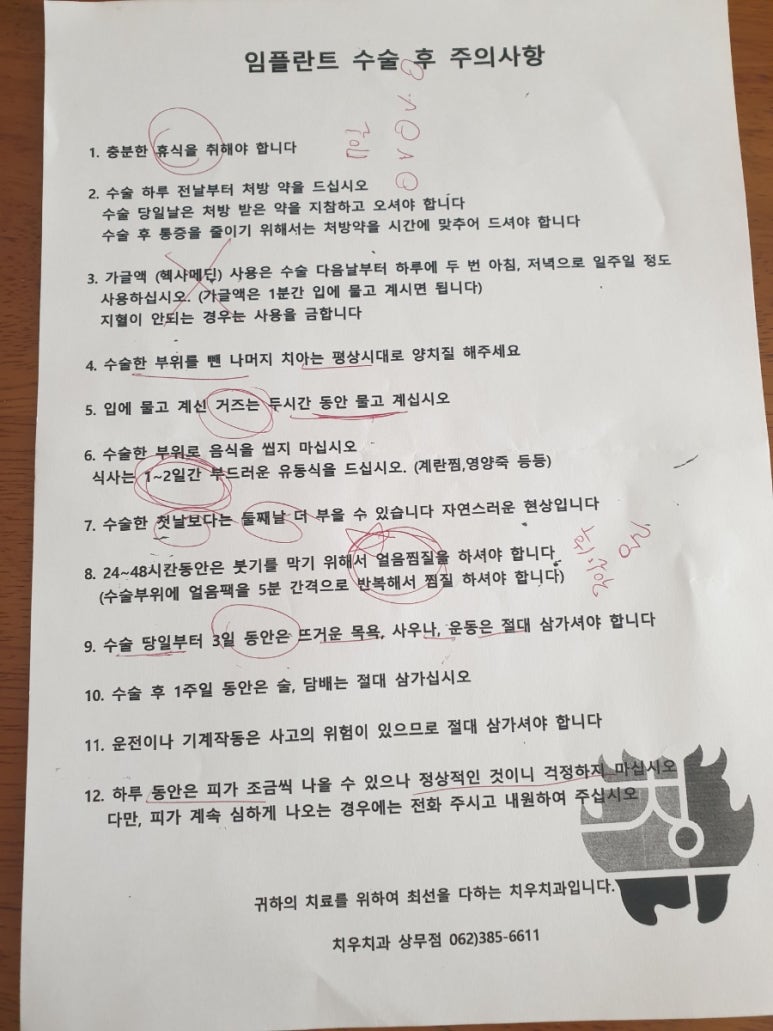 임플란트 수술 후 주의사항
1. 충분한 휴식을 취해야 합니다
2. 수술 하루 전날부터 처방 약을 드십시오
수술 당일날은 처방 받은 약을 지참하고 오셔야 합니다
수술 후 통증을 줄이기 위해서는 처방약을 시간에 맞추어 드셔야 합니다
3. 가글액 (헥사메딘) 사용은 수술 다음날부터 하루에 두 번 아침, 저녁으로 일주일 정도
사용하십시오. (가글액은 1분간 입에 물고 계시면 됩니다)
지혈이 안되는 경우는 사용을 금합니다
4. 수술한 부위를 뺀 나머지 치아는 평상시대로 양치질 해주세요
5. 입에 물고 계신 거즈는 두시간 동안 물고 계십시오
6. 수술한 부위로 음식을 씹지 마십시오
식사는 1~2일간 부드러운 유동식을 드십시오. (계란찜,영양죽 등등)
7. 수술한 첫날보다는 둘째날 더 부을 수 있습니다 자연스러운 현상입니다
8. 24~48시간동안은 붓기를 막기 위해서 얼음찜질을 하셔야 합니다.
(수술부위에 얼음팩을 5분 간격으로 반복해서 찜질 하셔야 합니다)
9. 수술 당일부터 3일 동안은 뜨거운 목욕, 사우나, 운동은 절대 삼가셔야 합니다
10. 수술 후 1주일 동안은 술, 담배는 절대 삼가십시오
11. 운전이나 기계작동은 사고의 위험이 있으므로 절대 삼가셔야 합니다
12. 하루 동안은 피가 조금씩 나올 수 있으나 정상적인 것이니 걱정하지 마십시오
다만, 피가 계속 심하게 나오는 경우에는 전화 주시고 내원하여 주십시오
귀하의 치료를 위하여 최선을 다하는 치우치과입니다.
치우치과 상무점 062)385-6611